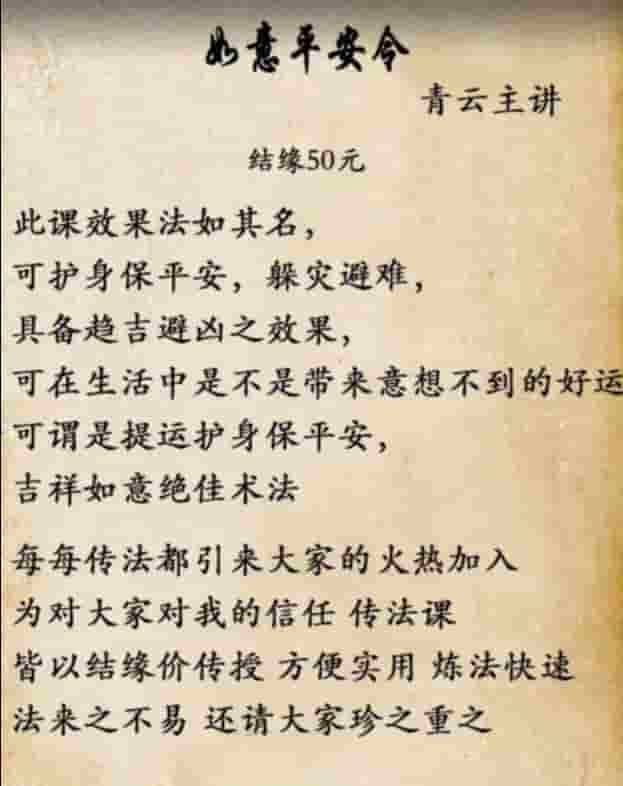 如意平安令
青云主讲
结缘50元
此课效果法如其名，
可护身保平安，躲灾避难，
具备趋吉避凶之效果，
可在生活中是不是带来意想不到的好运
可谓是提运护身保平安，
吉祥如意绝佳术法
每每传法都引来大家的火热加入
为对大家对我的信任 传法课
皆以结缘价传授 方便实用 炼法快速
法来之不易 还请大家珍之重之